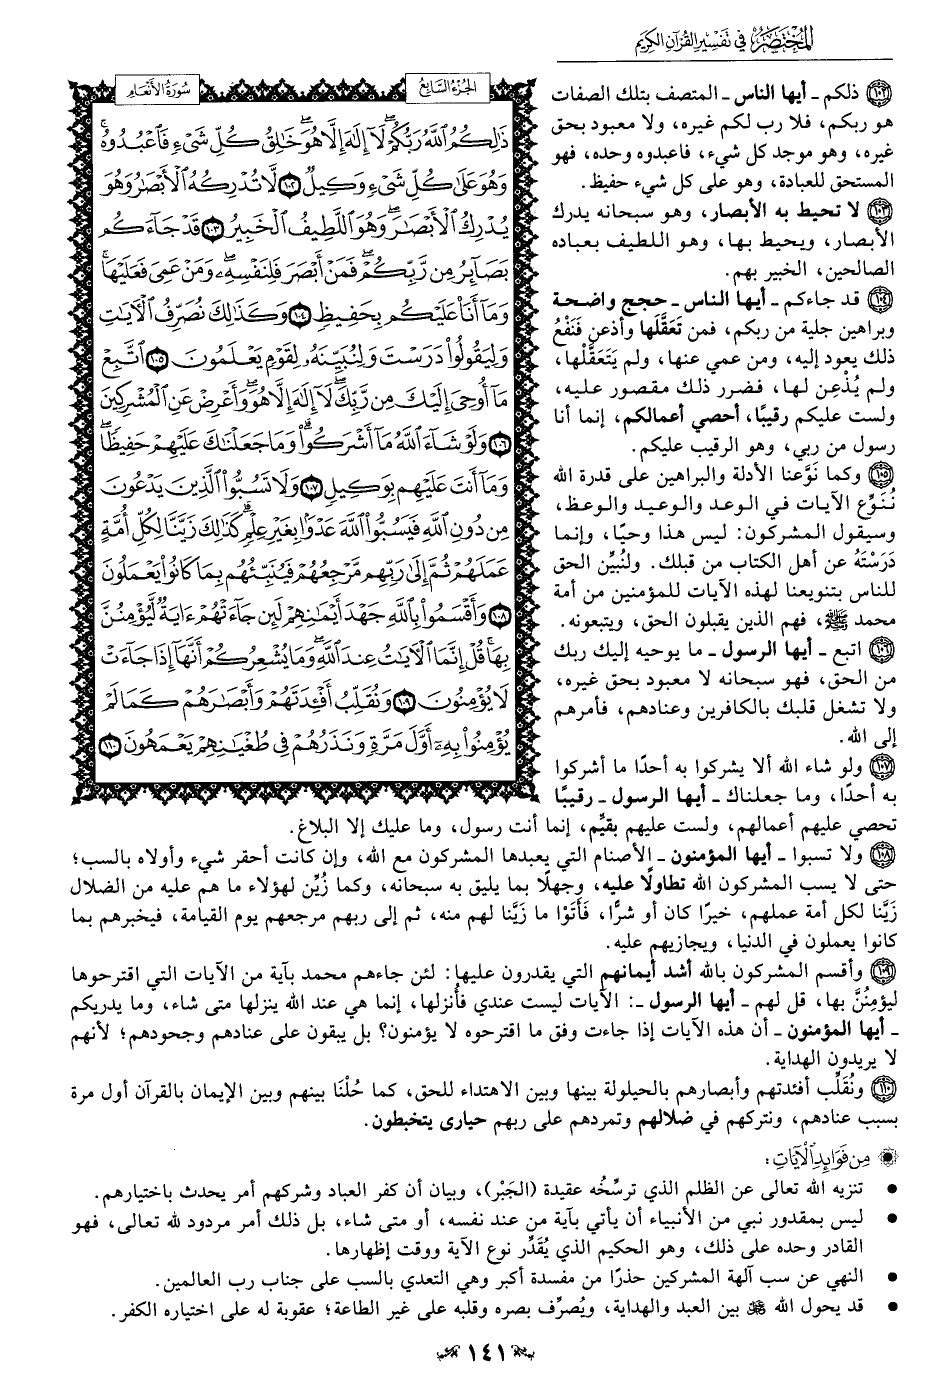 المختصر في تفسير القرآن الكريم
الجزء السابع
سورة الأنعام
ذَٰلِكُمُ ٱللَّهُ رَبُّكُمْۖ لَآ إِلَٰهَ إِلَّا هُوَۖ خَٰلِقُ كُلِّ شَيْءٍ فَٱعْبُدُوهُۚ
وَهُوَ عَلَىٰ كُلِّ شَيْءٍ وَكِيلٌ ١٠٢ لَّا تُدْرِكُهُ ٱلْأَبْصَٰرُ وَهُوَ
يُدْرِكُ ٱلْأَبْصَٰرَۖ وَهُوَ ٱللَّطِيفُ ٱلْخَبِيرُ ١٠٣ قَدْ جَآءَكُم
بَصَآئِرُ مِن رَّبِّكُمْۖ فَمَنْ أَبْصَرَ فَلِنَفْسِهِۦۖ وَمَنْ عَمِيَ فَعَلَيْهَاۚ
وَمَآ أَنَا۠ عَلَيْكُم بِحَفِيظٍ ١٠٤ وَكَذَٰلِكَ نُصَرِّفُ ٱلْأٓيَٰتِ
وَلِيَقُولُوا۟ دَرَسْتَ وَلِنُبَيِّنَهُۥ لِقَوْمٍ يَعْلَمُونَ ١٠٥ ٱتَّبِعْ
مَآ أُوحِيَ إِلَيْكَ مِن رَّبِّكَۖ لَآ إِلَٰهَ إِلَّا هُوَۖ وَأَعْرِضْ عَنِ ٱلْمُشْرِكِينَ
١٠٦ وَلَوْ شَآءَ ٱللَّهُ مَآ أَشْرَكُوا۟ۗ وَمَا جَعَلْنَٰكَ عَلَيْهِمْ حَفِيظًاۖ
وَمَآ أَنتَ عَلَيْهِم بِوَكِيلٍ ١٠٧ وَلَا تَسُبُّوا۟ ٱلَّذِينَ يَدْعُونَ
مِن دُونِ ٱللَّهِ فَيَسُبُّوا۟ ٱللَّهَ عَدْوًۢا بِغَيْرِ عِلْمٍۗ كَذَٰلِكَ زَيَّنَّا لِكُلِّ أُمَّةٍ
عَمَلَهُمْ ثُمَّ إِلَىٰ رَبِّهِم مَّرْجِعُهُمْ فَيُنَبِّئُهُم بِمَا كَانُوا۟ يَعْمَلُونَ
١٠٨ وَأَقْسَمُوا۟ بِٱللَّهِ جَهْدَ أَيْمَٰنِهِمْ لَئِن جَآءَتْهُمْ ءَايَةٌ لَّيُؤْمِنُنَّ
بِهَاۚ قُلْ إِنَّمَا ٱلْأٓيَٰتُ عِندَ ٱللَّهِۖ وَمَا يُشْعِرُكُمْ أَنَّهَآ إِذَا جَآءَتْ
لَا يُؤْمِنُونَ ١٠٩ وَنُقَلِّبُ أَفْـِٔدَتَهُمْ وَأَبْصَٰرَهُمْ كَمَا لَمْ
يُؤْمِنُوا۟ بِهِۦٓ أَوَّلَ مَرَّةٍ وَنَذَرُهُمْ فِي طُغْيَٰنِهِمْ يَعْمَهُونَ ١١٠
١٠٢ ذلكم - أيها الناس - المتصف بتلك الصفات
هو ربكم، فلا رب لكم غيره، ولا معبود بحق
غيره، وهو موجد كل شيء، فاعبدوه وحده، فهو
المستحق للعبادة، وهو على كل شيء حفيظ.
١٠٣ لا تحيط به الأبصار، وهو سبحانه يدرك
الأبصار، ويحيط بها، وهو اللطيف بعباده
الصالحين، الخبير بهم.
١٠٤ قد جاءكم - أيها الناس - حجج واضحة
وبراهين جلية من ربكم، فمن تَعَقَّلَها وأذعن فنَفْعُ
ذلك يعود إليه، ومن عمي عنها، ولم يَتَعَقَّلْها،
ولم يُذْعِن لها، فضرر ذلك مقصور عليه،
ولست عليكم رقيبًا، أحصي أعمالكم، إنما أنا
رسول من ربي، وهو الرقيب عليكم.
١٠٥ وكما نَوَّعنا الأدلة والبراهين على قدرة الله
نُنَوِّع الآيات في الوعد والوعيد والوعظ،
وسيقول المشركون: ليس هذا وحيًا، وإنما
دَرَسْتَهُ عن أهل الكتاب من قبلك. ولنُبيِّن الحق
للناس بتنويعنا لهذه الآيات للمؤمنين من أمة
محمد ﷺ، فهم الذين يقبلون الحق، ويتبعونه.
١٠٦ اتبع - أيها الرسول - ما يوحيه إليك ربك
من الحق، فهو سبحانه لا معبود بحق غيره،
ولا تشغل قلبك بالكافرين وعنادهم، فأمرهم
إلى الله.
١٠٧ ولو شاء الله ألا يشركوا به أحدًا ما أشركوا
به أحدًا، وما جعلناك - أيها الرسول - رقيبًا
تحصي عليهم أعمالهم، ولست عليهم بقيِّم، إنما أنت رسول، وما عليك إلا البلاغ.
١٠٨ ولا تسبوا - أيها المؤمنون - الأصنام التي يعبدها المشركون مع الله، وإن كانت أحقر شيء وأولاه بالسب؛
حتى لا يسب المشركون الله تطاولًا عليه، وجهلًا بما يليق به سبحانه، وكما زُيِّن لهؤلاء ما هم عليه من الضلال
زَيَّنا لكل أمة عملهم، خيرًا كان أو شرًّا، فَأَتَوْا ما زَيَّنا لهم منه، ثم إلى ربهم مرجعهم يوم القيامة، فيخبرهم بما
كانوا يعملون في الدنيا، ويجازيهم عليه.
١٠٩ وأقسم المشركون بالله أشد أيمانهم التي يقدرون عليها: لئن جاءهم محمد بآية من الآيات التي اقترحوها
ليؤمِنُنَّ بها، قل لهم - أيها الرسول -: الآيات ليست عندي فأُنزلها، إنما هي عند الله ينزلها متى شاء، وما يدريكم
- أيها المؤمنون - أن هذه الآيات إذا جاءت وفق ما اقترحوه لا يؤمنون؟ بل يبقون على عنادهم وجحودهم؛ لأنهم
لا يريدون الهداية.
١١٠ ونُقَلِّب أفئدتهم وأبصارهم بالحيلولة بينها وبين الاهتداء للحق، كما حُلْنَا بينهم وبين الإيمان بالقرآن أول مرة
بسبب عنادهم، ونتركهم في ضلالهم وتمردهم على ربهم حيارى يتخبطون.
من فوائد الآيات:
• تنزيه الله تعالى عن الظلم الذي ترسِّخُه عقيدة (الجَبْر)، وبيان أن كفر العباد وشركهم أمر يحدث باختيارهم.
• ليس بمقدور نبي من الأنبياء أن يأتي بآية من عند نفسه، أو متى شاء، بل ذلك أمر مردود لله تعالى، فهو
القادر وحده على ذلك، وهو الحكيم الذي يُقَدِّر نوع الآية ووقت إظهارها.
• النهي عن سب آلهة المشركين حذرًا من مفسدة أكبر وهي التعدي بالسب على جناب رب العالمين.
• قد يحول الله ﷻ بين العبد والهداية، ويُصرِّف بصره وقلبه على غير الطاعة؛ عقوبة له على اختياره الكفر.
١٤١